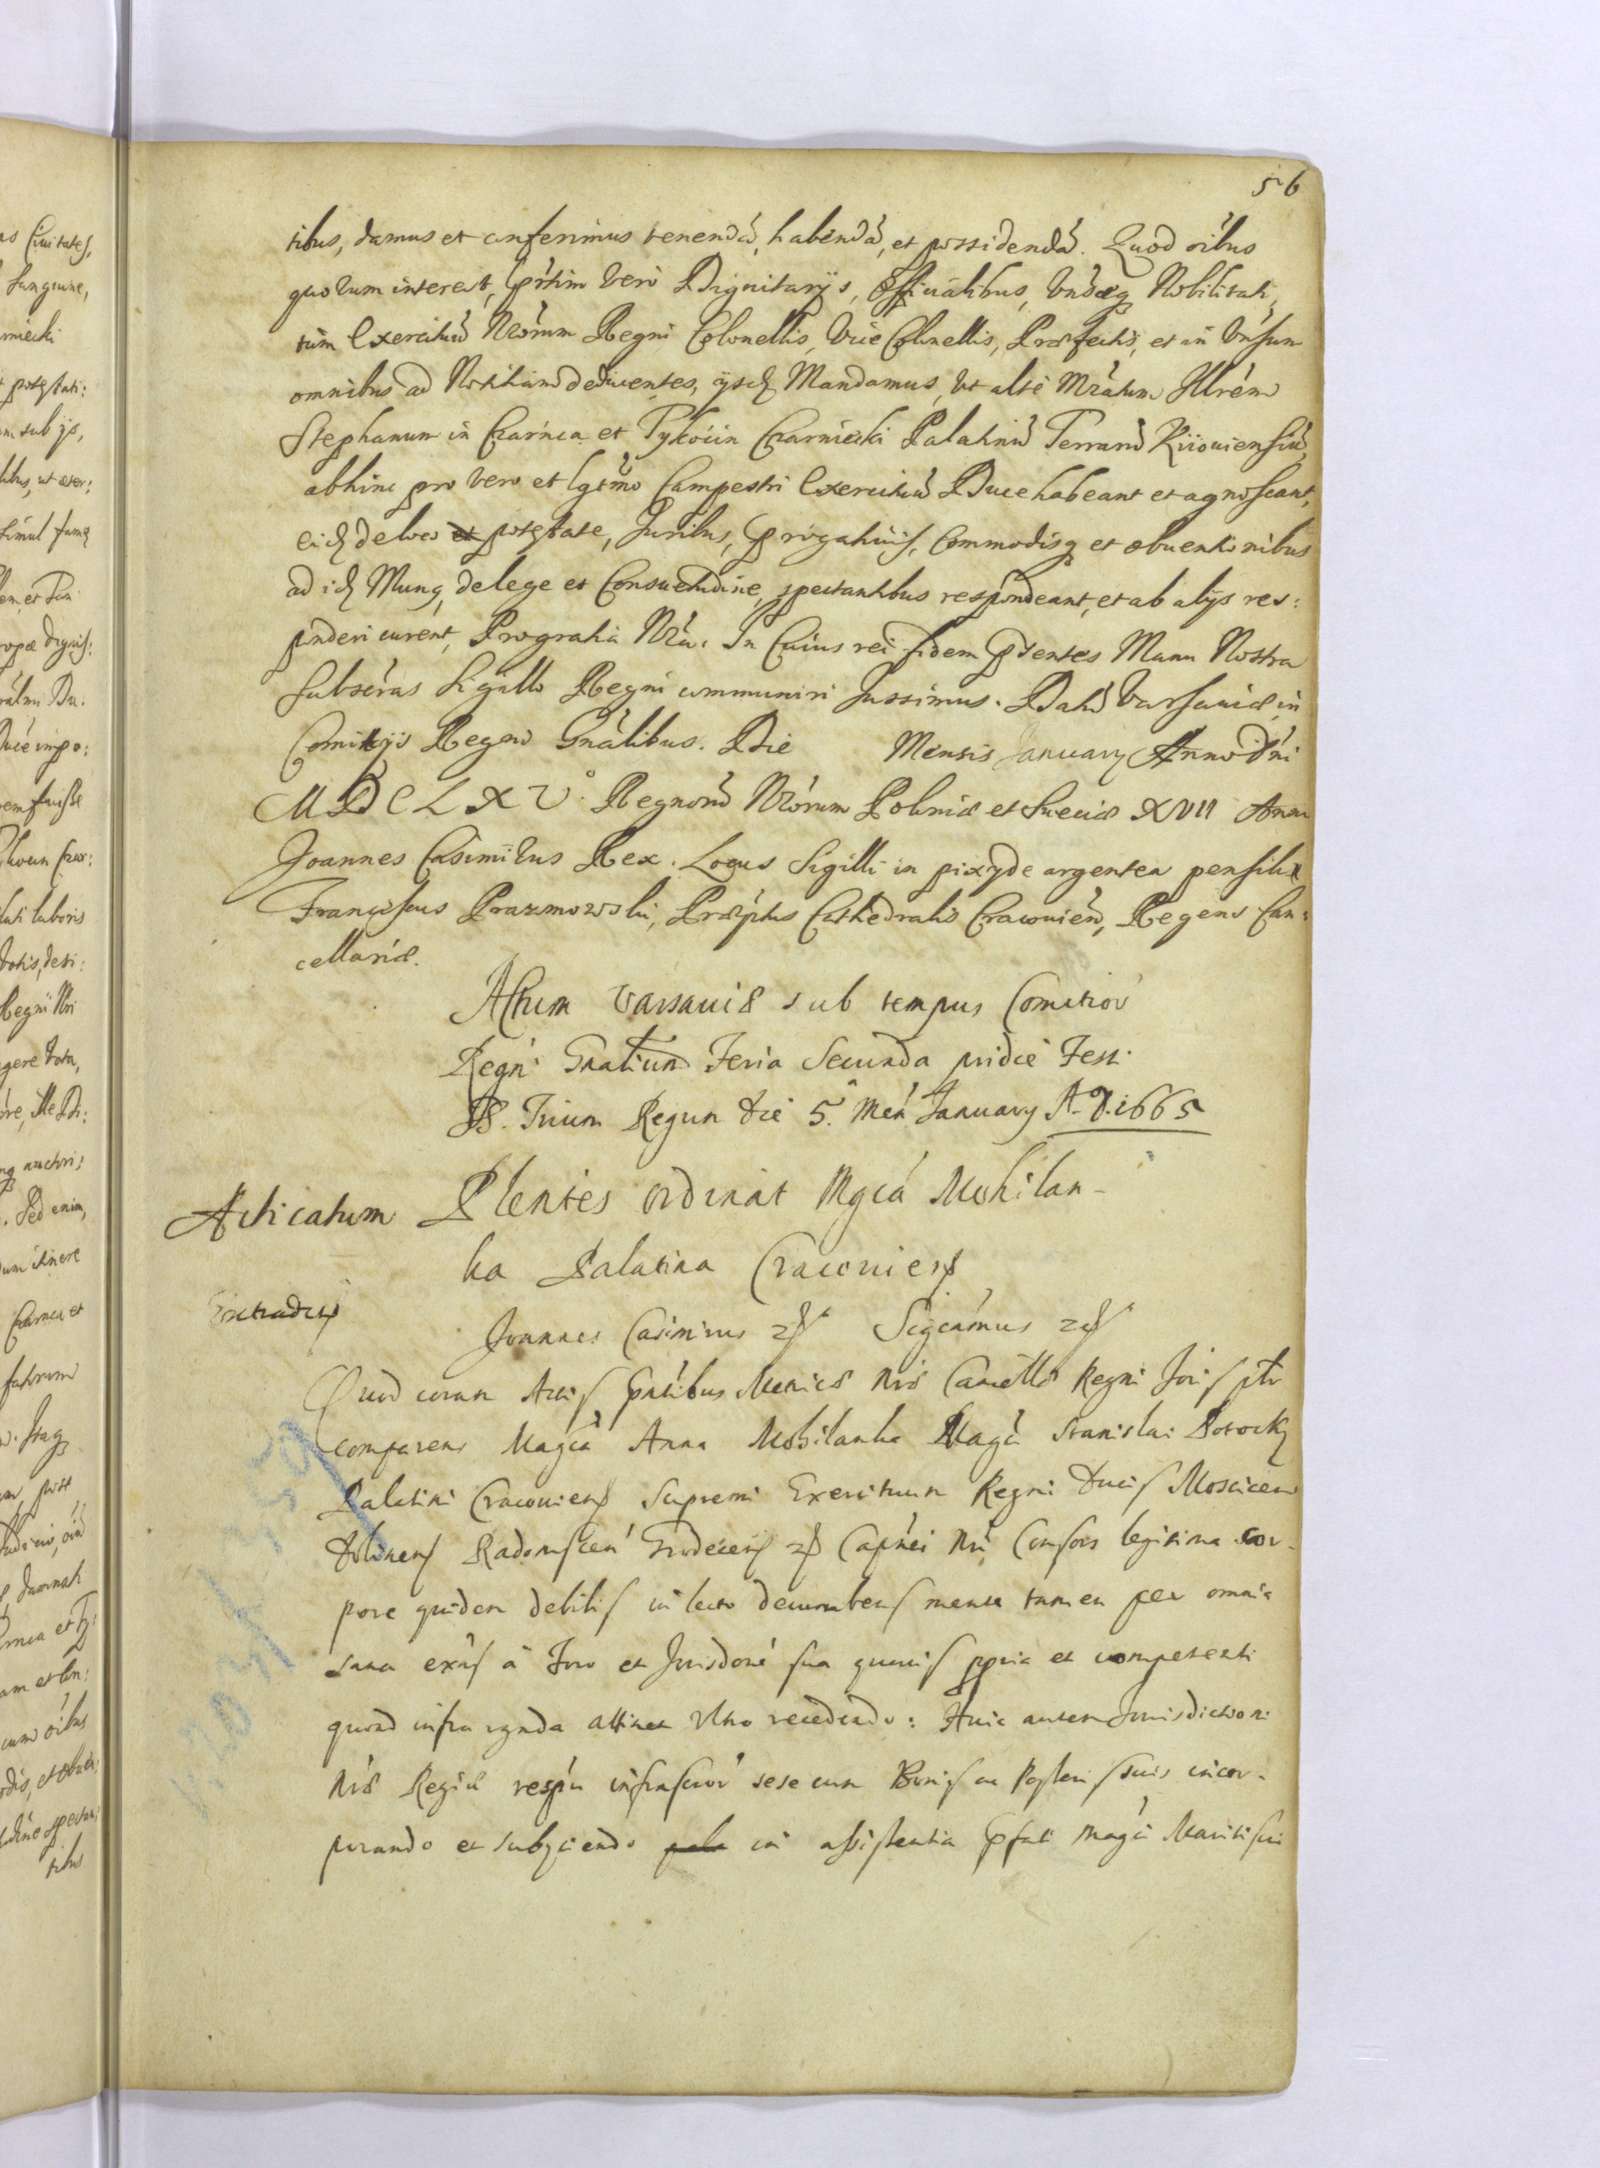 56
tibus, damus et conferimus tenendá, habendá, et possidendá. Quod oíbus
quorum interest, prǽtim vero Dignitarijs, Officialibus, Vnsæq Nobilitati,
tùm Exercituũ Nrórum Regni Colonellis, Vice Colonellis, Præfectis, et in Vnsum
omnibus ad Notitiam deducentes, ijsdē Mandamus, Vt altè Mrátum Illrém
Stephanum in Czarńca et Tykocin Czarniecki Palatinũ Terrarũ Kiiouiensiũ,
abhinc pro vero et lgtmo Campestri Exercituũ Duce habeant et agnoscant,
eidē de loco et potestate, Juribus, prǽrogatiuis, Commodisq et obuentionibus
ad idē Munq, de lege et Consuetudine, spectantibus respondeant, et ab alijs res:
ponderi curent, Pro gratia Nrá. In Cuius rei fidem prsentes Manu Nostra
Subscrás Sigillo Regni communiri Jussimus. Datũ Varsauiæ, in
Comitijs Regni Gnálibus. Die Mensis January Anno Dńi
MDCLXV° Regnorũ Nrórum Poloniæ et Sueciæ XVII Anno
Joannes Casimirus Rex. Locus Sigilli in pixyde argentea pensili
Franciscus Prazmowski, Præptus Cathedralis Cracouień, Regens Can:
cellariæ.
Actum Varsauiæ sub tempus Comitiorú
Regni Gnaliũ Feria Secunda pridie Fest.
SS. Trium Regum die 5ª Meń January A.D. 1665
Acticatum Plentes ordinat Mgcá Mohilan-
ka Palatina Cracouieñ
Extradit
Joannes Casimirus etc Significámus etc
Quod coram Actis Gnálibus Metricæ Nræ Cancellæ Regni
comparens Magcá Anna Mohilanka Magcí Stanislai Potocky
Palatini Cracouień Supremi Exercituum Regni Ducis Moscicen
Dolinens Radomscień Grodecień etc Capnéi Nri Consors legitima cor-
pore quidem debilis in lecto decumbens mente tamen per omnia
sana exns à Foro et Jurisdoné sua quauis ppria et competenti
quoad infra rgnda attinet Vltro recedendo: Huic autem Jurisdictioni
Nræ Regiæ respu infrascrór sese cum Bonis ac Posteris suis incor-
porando et subijciendo in assistentia pfati Magcí Mariti sui